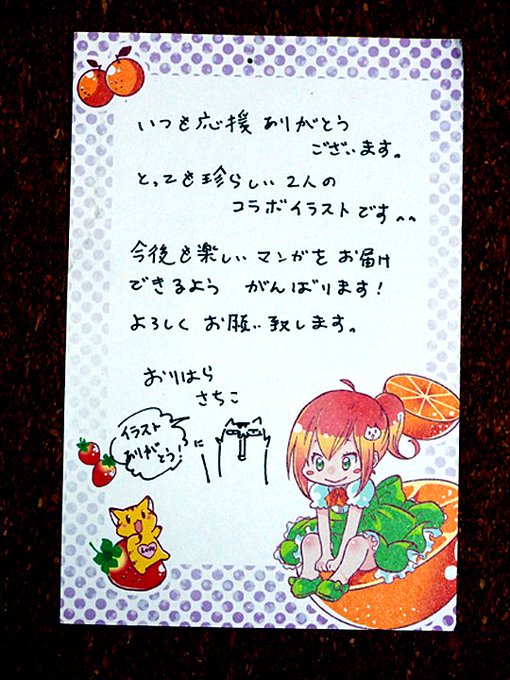 いつも応援ありがとう
ございます。
とっても珍らしい2人の
コラボイラストです^^
今後も楽しいマンガをお届け
できるよう がんばります!
よろしくお願い致します。
おりはら
さちこ
イラスト
ありがとう!
Love